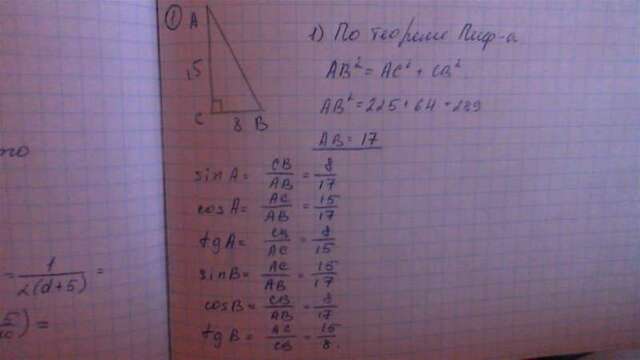 ① A
1) По теореме Пиф-а
15
AB² = AC² + CB²
C 8 B
AB² = 225 + 64 = 289
AB = 17
sin A = CB/AB = 8/17
cos A = AC/AB = 15/17
tg A = CB/AC = 8/15
sin B = AC/AB = 15/17
cos B = CB/AB = 8/17
tg B = AC/CB = 15/8.
= 1/(2(d+5)) =
) =